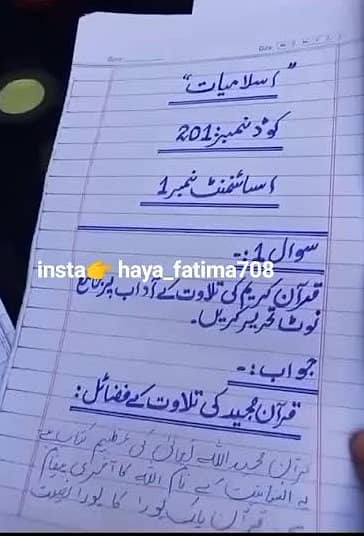 "اسلامیات"
کوڈ نمبر: 201
اسائنمنٹ نمبر 1
سوال 1:-
insta👉 haya_fatima708
قرآن کریم کی تلاوت کے آداب پر جامع
نوٹ تحریر کریں۔
جواب:-
قرآن مجید کی تلاوت کے فضائل:
قرآن مجید اللہ تعالیٰ کی عظیم کتاب ہے
یہ انسانیت کے نام اللہ کا آخری پیغام
ہے قرآن پاک پورا کا پورا